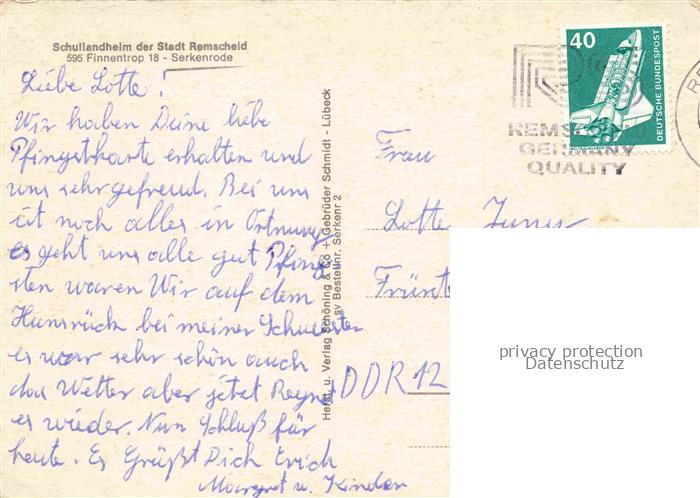 Schullandheim der Stadt Remscheid
595 Finnentrop 18 - Serkenrode
Liebe Lotte!
Wir haben Deine liebe
Pfingstkarte erhalten und
uns sehr gefreud. Bei uns
ist noch alles in Ortnung
es geht uns alle gut Pfing
sten waren Wir auf dem
Hunsrück bei meiner Schwester
es war sehr schön auch
das Wetter aber jetzt Regnet
es wieder. Nun Schluß für
heute. Es Grüßt Dich Erich
Margret u. Kinder
Herst. u. Verlag Schöning & Co + Gebrüder Schmidt - Lübeck
sv Bestellnr. Serkenr 2
40
DEUTSCHE BUNDESPOST
REMSCHEID
GERMANY
QUALITY
Frau
Lotte
DDR 12
privacy protection
Datenschutz